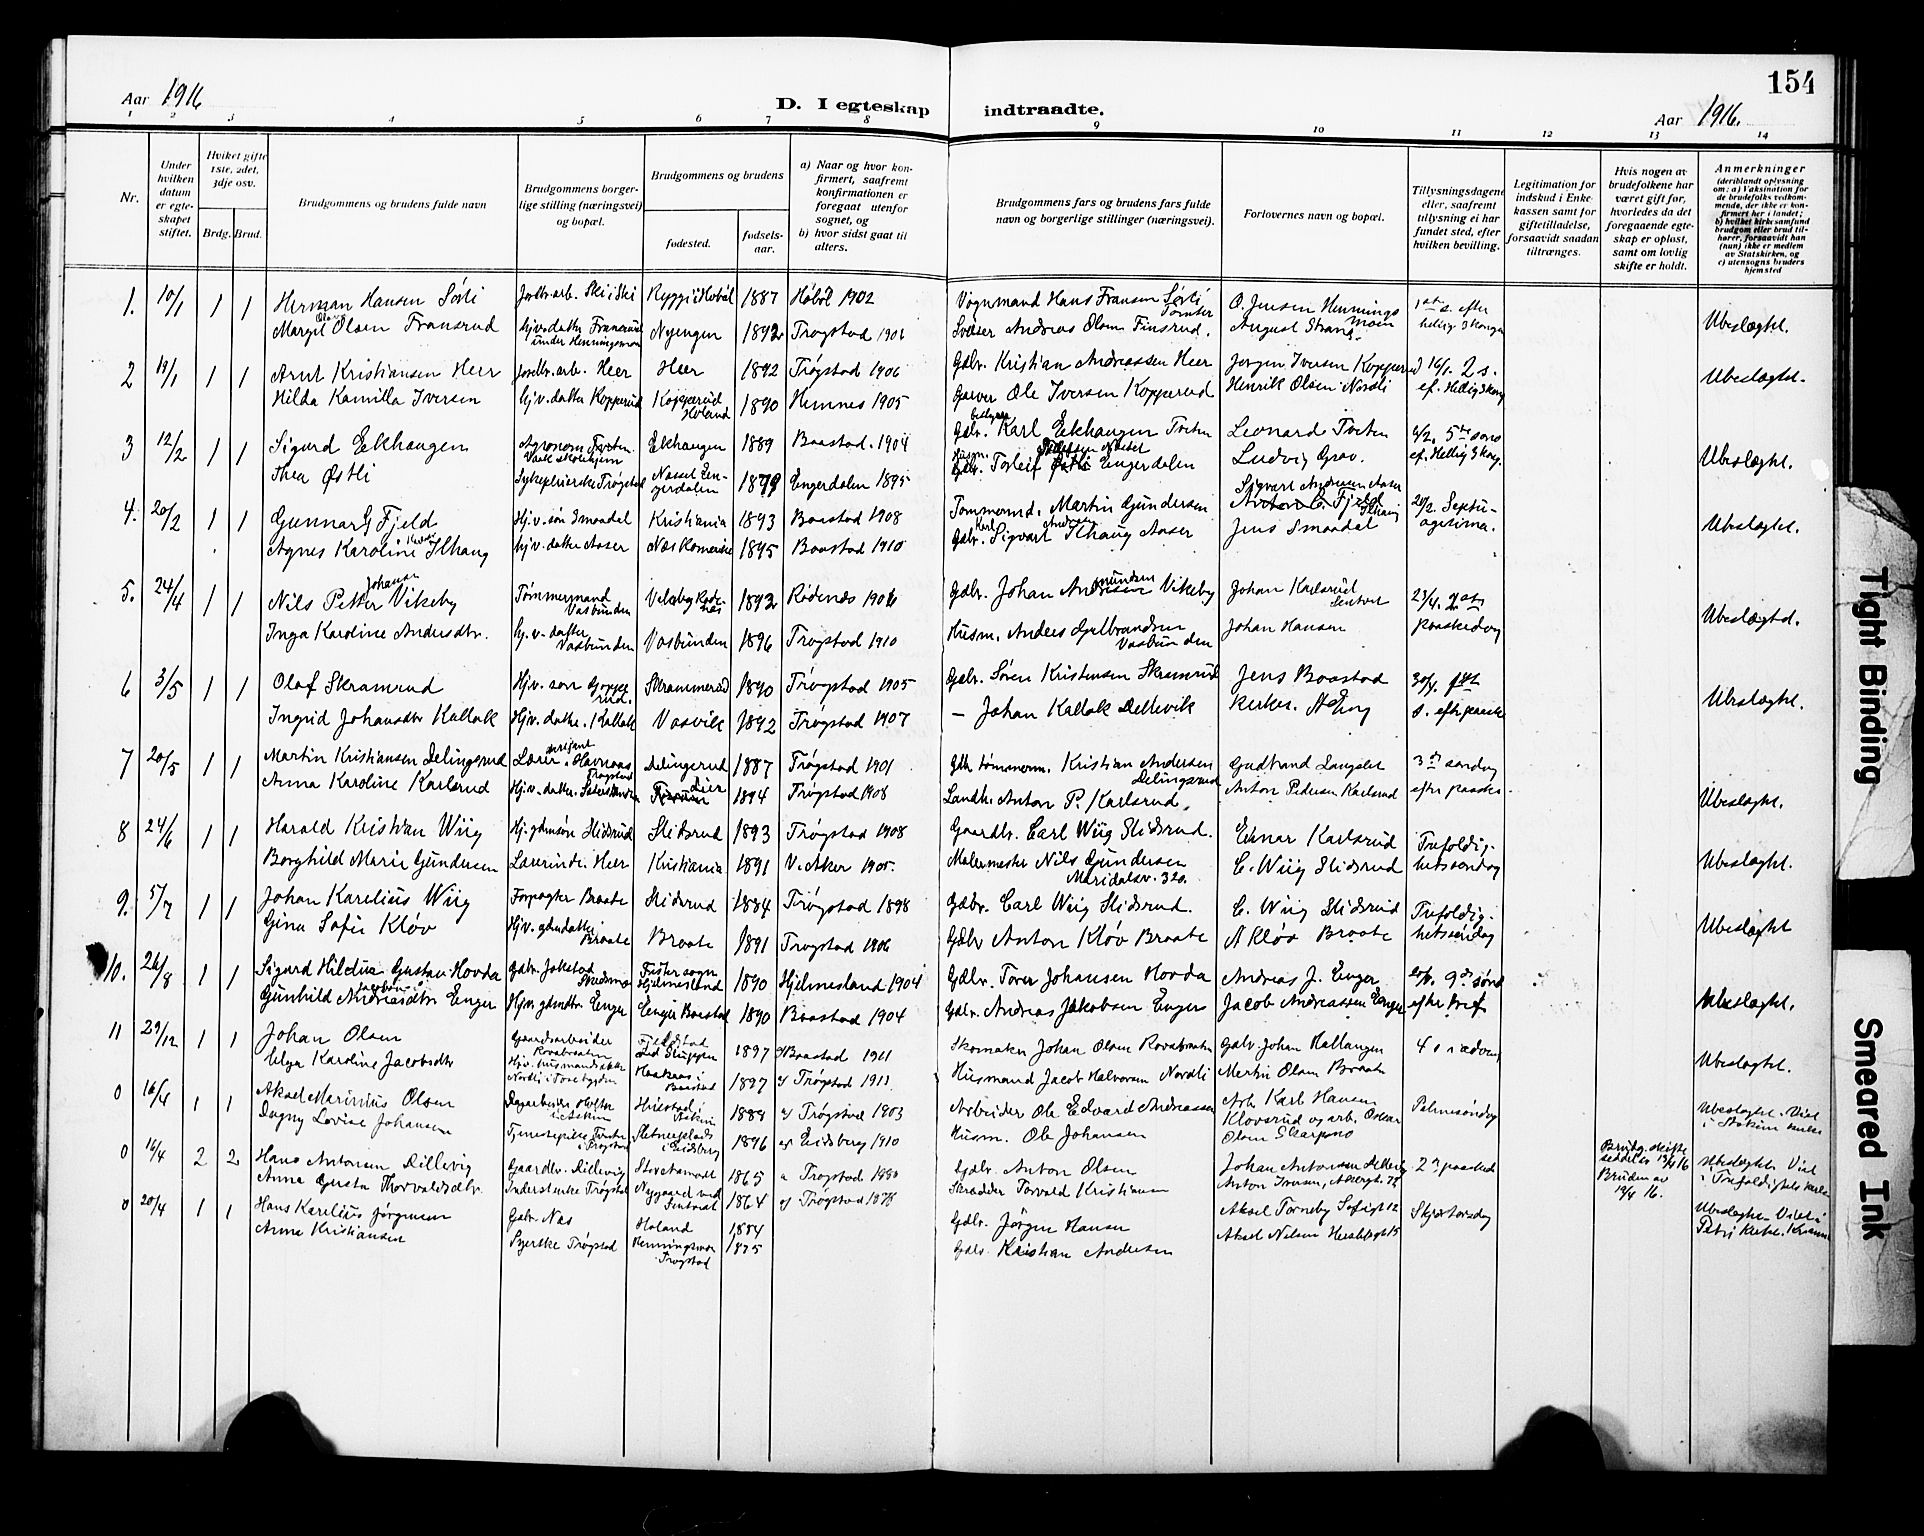 154
Aar 1916
D. I egteskap indtraadte.
Aar 1916.
1 2 3 4 5 6 7 8 9 10 11 12 13 14
Nr.
Under hvilken datum er egteskapet stiftet.
Hvilket gifte 1ste, 2det, 3dje osv.
Brdg. Brud.
Brudgommens og brudens fulde navn
Brudgommens borgerlige stilling (næringsvei) og bopæl.
Brudgommens og brudens
fødested.
fødselsaar.
a) Naar og hvor konfirmert, saafremt konfirmationen er foregaat utenfor sognet, og
b) hvor sidst gaat til alters.
Brudgommens fars og brudens fars fulde navn og borgerlige stillinger (næringsvei).
Forlovernes navn og bopæl.
Tillysningsdagene eller, saafremt tillysning ei har fundet sted, efter hvilken bevilling.
Legitimation for indskud i Enkekassen samt for giftetilladelse, forsaavidt saadan tiltrænges.
Hvis nogen av brudefolkene har været gift før, hvorledes da det foregaaende egteskap er opløst, samt om lovlig skifte er holdt.
Anmerkninger
(deriblandt oplysning om: a) Vaksination for de brudefolks vedkommende, der ikke er konfirmert her i landet; b) hvilket kirkesamfund brudgom eller brud tilhører, forsaavidt han (hun) ikke er medlem av Statskirken, og c) utensogns bruders hjemsted
1. 10/1 1 1 Herman Hansen Sørli Jordbr.arb. Ski i Ski 1887 Høböl 1902 Vognmand Hans Fransen Sørli O. Jensen Hennings 1ste s. efter
Margit Olava Olsen Fransrud hjv. datter Fransrud under Henningsmoen Nyengen 1892 Trøgstad 1906 Andreas Olsen Finsrud. August Strand hellig 3 konger Ubeslægtet.
2 19/1 1 1 Arnt Kristiansen Heer Jordbr. arb. Heer Heer 1892 Trøgstad 1906 Gdbr. Kristian Andreassen Heer Jørgen Iversen Kopperud 16/1. 2 s.
Hilda Kamilla Iversen hjv. datter Kopperud Kopperud Høland 1890 Hemnes 1905 Garver Ole Iversen Kopperud Henrik Olsen Nordli ef. Hellig 3 kong Ubeslægtet.
3 12/2 1 1 Sigurd Eekhaugen Agronom Eekhaugen 1889 Baastad. 1904 Gdbr. bestyrer Karl Eekhaugen Tveten Leonard Tveten 6/2. 5te sønd
Thea Østli Sykepleierske Trøgstad Engerdalen 1879 Engerdalen 1895 Torleif Engerdalen Ludvig Grav. ef. Hellig 3 kong. Ubeslægtet.
4. 20/2 1 1 Gunnar G Fjeld Hjv. søn Smaadal Kristiania 1893 Baastad 1908 Tømmermd. Martin Gundersen Sigvart Andersen Aaser 20/2. Septu-
Agnes Karoline Ilhaug hjv. datter Aaser Næs Romerike 1895 Baastad 1910 Gdbr. Karl Sigvart Andersen Ilhaug Aaser Jens Smaadal agesima. Ubeslægtet.
5. 24/4 1 1 Nils Petter Johansen Vikeby Tømmermand Vasbunden 1892 Rødenæs 1906 Gdbr. Johan Vikeby Johan Karlsrud 23/4. 2den
Inga Karoline Andersdtr. hj. v. datter Vasbunden Vasbunden 1896 Trøgstad 1910 Husm. Anders Gulbrandsen Vasbunden Johan Hansen paaskedag Ubeslægted.
6 3/5 1 1 Olaf Skramrud Hjv. søn Skrammerud 1890 Trøgstad 1905 Gdbr. Søren Kristensen Skramrud Jens Baastad 30/4. 1ste
Ingrid Johansdtr Kallak Hjv. datter. Kallak Vasvik 1892 Trøgstad 1907 — Johan Kallak Dellevik Kirkes. A Eng s. efter paaske Ubeslægtet.
7 20/5 1 1 Martin Kristiansen Delingsrud Lærer Havnaas Trøgstad Delingsrud 1887 Trøgstad 1901 Gbr. tømmerm. Kristian Andersen Delingsrud Gudbrand Langsæt 3die søndag
Anna Karoline Karlsrud Hjv. datter. Lier 1894 Trøgstad 1908 Landh. Anton P. Karlsrud. Anton Pedersen Karlsrud efter paaske. Ubeslægtet.
8 24/6 1 1 Harald Kristian Wiig Hj. gdmsøn Slidsrud Slidsrud 1893 Trøgstad 1908 Gaardbr. Carl Wiig Slidsrud. Einar Karlsrud Trefoldig-
Borghild Marie Gundersen Lærerinde. Heer Kristiania 1891 V. Aker 1905. Malermester Nils Gundersen Maridalsv. 320. C. Wiig Slidsrud hetssøndag Ubeslægtet.
9. 5/7 1 1 Johan Karelius Wiig Forpagter Braate Slidsrud 1884 Trøgstad 1898 Gdbr. Carl Wiig Slidsrud. C. Wiig Slidsrud Trefoldig-
Gina Sofie Kløv Hjv. gdmdatter Braate Braate 1891 Trøgstad 1906 Gdbr Anton Kløv Braate A Kløv Braate hetssøndag Ubeslægtet
10. 26/8 1 1 Sigurd Hildus Gustav Hovda Gdbr. Jakstad Fister sogn Hjelmesland 1890 Hjelmesland 1904 Gdbr. Tore Johansen Hovda Andreas J. Enger 20/8. 9de sønd
Gunhild Andreasdtr Enger Hjv. gdmdtr. Enger Enger Baastad 1890 Baastad 1904 Gdbr. Andreas Jakobsen Enger Jacob Andreassen Enger efter tref Ubeslægtet.
11 29/12 1 1 Johan Olsen Gaardsarbeider Rovabraaten 1897 Baastad 1911 Skomaker Johan Olsen Rovabraaten Gdbr Johan Kallangen 4 s i advent
Helga Karoline Jacobsdtr Nordli i Baastad 1897 Trøgstad 1911. Husmand Jacob Halvorsen Nordli Martin Olsen Braate Ubeslægtet.
0 16/4 1 1 Aksel Marinius Olsen Dagarbeider i Askim Askim 1889 Trøgstad 1903 Arbeider Ole Edvard Andreassen Arb. Karl Hansen Kloverud og arb. Oskar Palmesøndag Ubeslægtet. Viet
Dagny Lovise Johansen Tjenestepike i Trøgstad i Eidsberg 1896 Eidsberg 1910 Husm. Ole Johansen Olsen Skarpsno i Askim kirke
0 16/4 2 2 Hans Antonsen Dillevig Gaardbr. Dillevig 1865 Trøgstad 1880 Gdbr. Anton Olsen Johan Antonsen 2 paaskd Brudg. skifte seddel 13/4 16 Ubeslægtet. Viet
Anna Gusta Thorvaldsdtr. Trøgstad Nygaard 1864 Trøgstad 1878 Skrædder Torvald Kristiansen Anton Iversen, Bruden av 19/4 16. i Trefoldighets kirke
0 20/4 1 1 Hans Karelius Jørgensen Gdbr. Næs Høland 1884 Gdbr. Jørgen Hansen Aksel Torneby Sofiegt 12 Skjærtorsdag Ubeslægtet. Viet i
Anna Kristiansen Syerske Trøgstad Henningsmoen Trøgstad 1875 Gdbr. Kristian Andersen Aksel Nilsen 15 Petri kirke.
Tight Binding
Smeared Ink